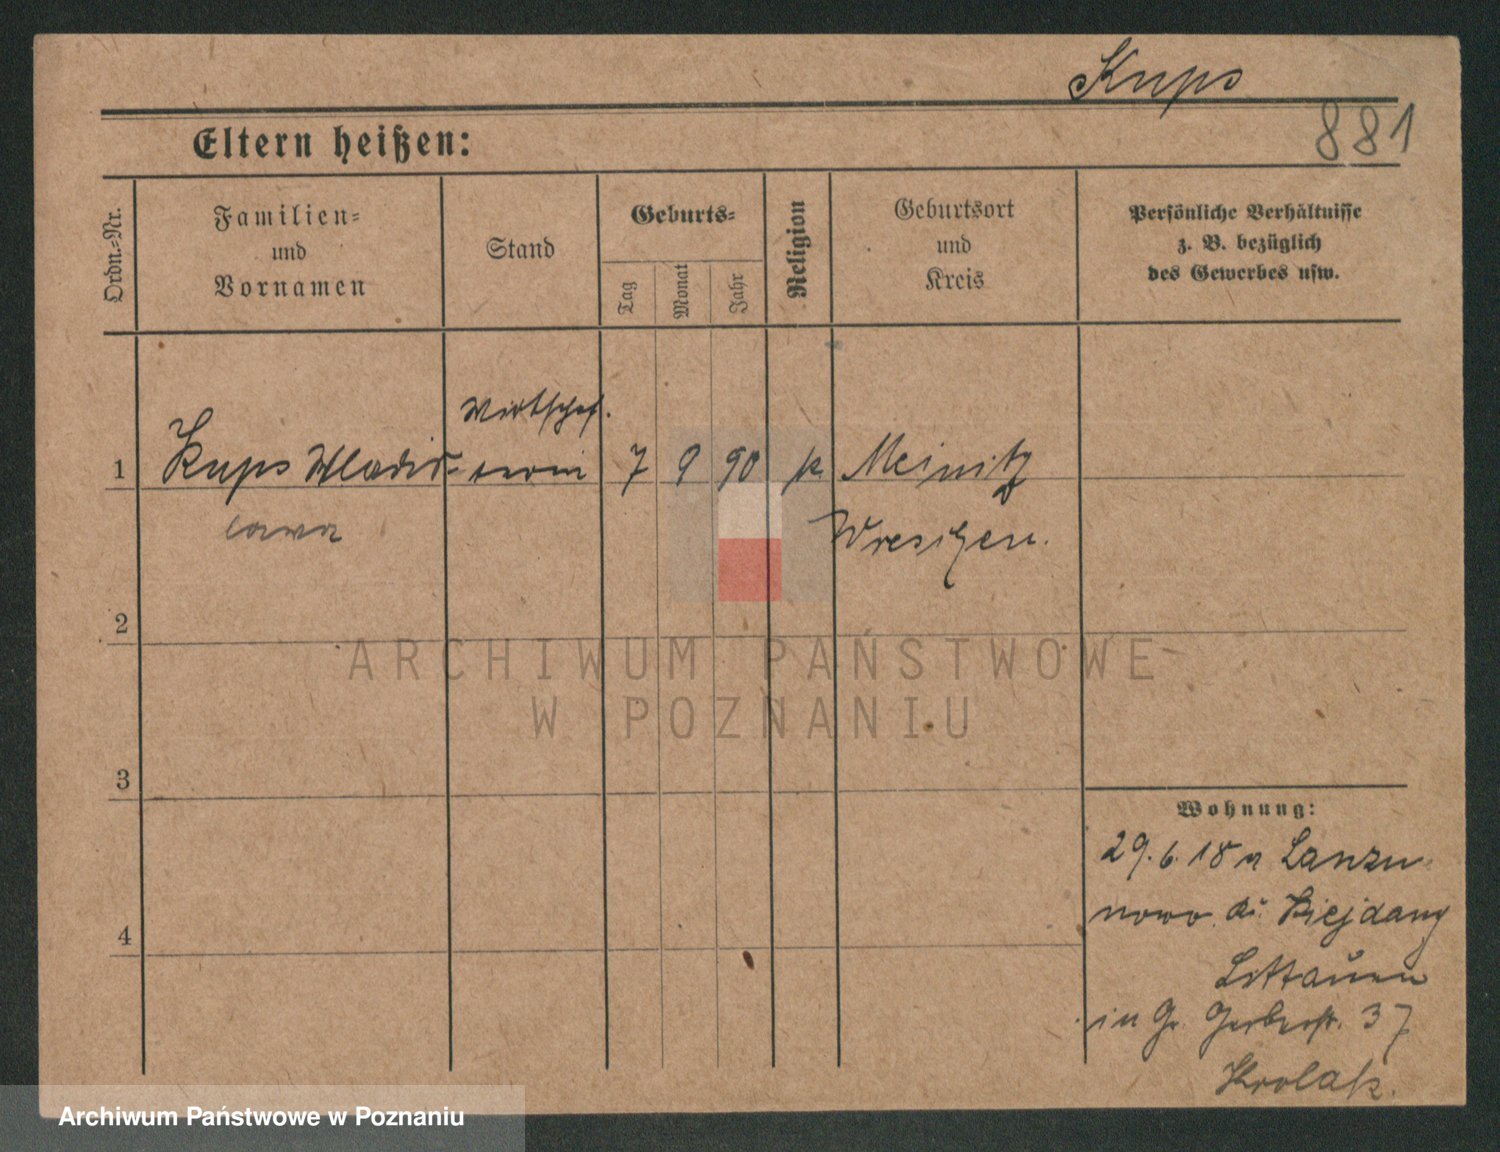 Kups
881
Eltern heißen:
Ordn.=Nr.
Familien=
und
Vornamen
Stand
Geburts=
Tag
Monat
Jahr
Religion
Geburtsort
und
Kreis
Persönliche Verhältnisse
z. B. bezüglich
des Gewerbes usw.
Wirtschaf.
1 Kups Wladis= 7 9 90 k. Meinitz
lawa Wreschen.
2
ARCHIWUM PAŃSTWOWE
W POZNANIU
3
Wohnung:
29.6.18 a
nowo. Kr. Kiejdany
4
Littauen
in Gr. Gerberstr. 37
Krolak.
Archiwum Państwowe w Poznaniu